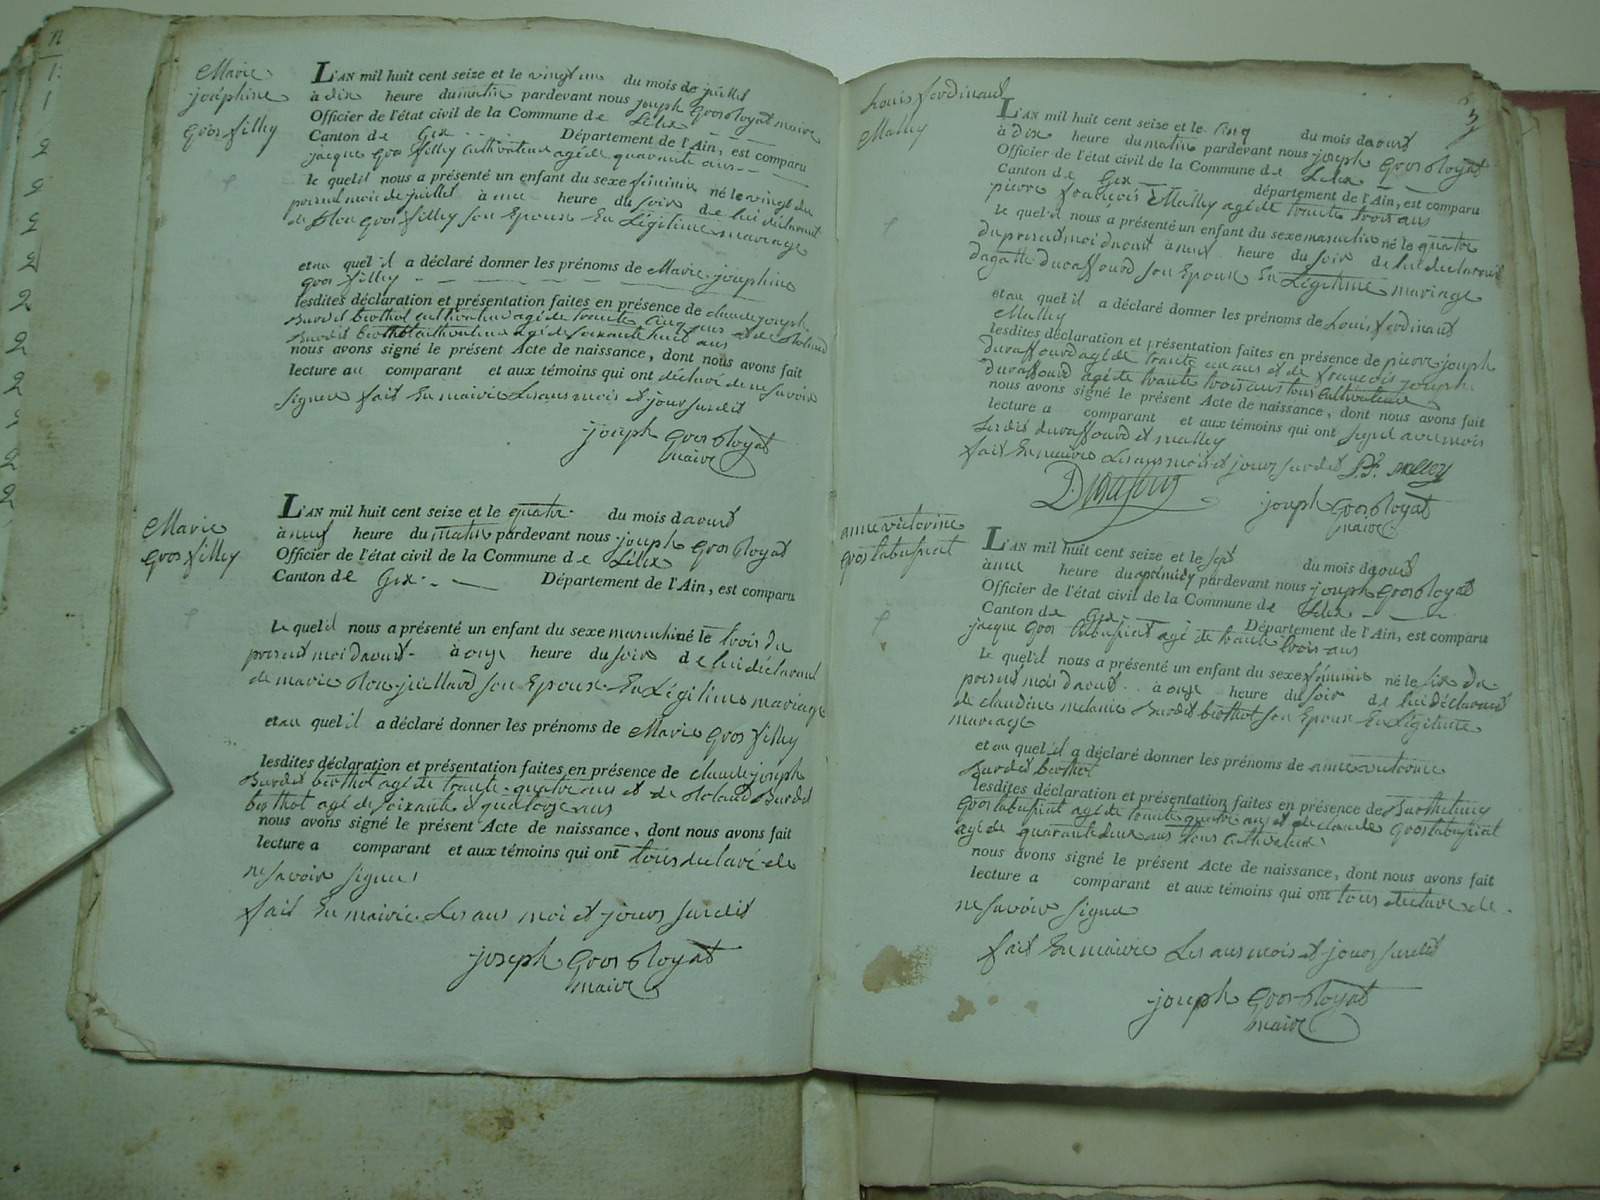 Marie
joséphine
Gros filley
L'AN mil huit cent seize et le vingt un du mois de juillet
à dix heure du matin pardevant nous joseph Gros Royat maire
Officier de l'état civil de la Commune de Lélex
Canton de Gex Département de l'Ain, est comparu
jacque Gros filley cultivateur agé de quarante ans
le quel il nous a présenté un enfant du sexe féminin né le vingt du
present moi de juillet à heure du soir de lui déclarant
de Gros filley son Epouse En Légitime mariage
et au quel il a déclaré donner les prénoms de Marie joséphine
Gros filley
lesdites déclaration et présentation faites en présence de claude joseph
Burdet berthet cultivateur agé de trente cinq ans et de Roland
Burdet berthet cultivateur agé de soixante huit ans
nous avons signé le présent Acte de naissance, dont nous avons fait
lecture au comparant et aux témoins qui ont déclaré de ne savoir
signer fait En mairie Les ans mois et jour susdit
joseph Gros Royat
maire
Marie
Gros filley
L'AN mil huit cent seize et le quatre du mois daoust
à neuf heure du matin pardevant nous joseph Gros Royat
Officier de l'état civil de la Commune de Lélex
Canton de Gex Département de l'Ain, est comparu
le quel il nous a présenté un enfant du sexe masculin né le trois du
present moi daoust à onze heure du soir de lui déclarant
de marie juillard son Epouse En Légitime mariage
et au quel il a déclaré donner les prénoms de Marie Gros filley
lesdites déclaration et présentation faites en présence de claude joseph
Burdet berthet agé de trente quatre ans et de Roland Burdet
berthet agé de soixante et quatorze ans
nous avons signé le présent Acte de naissance, dont nous avons fait
lecture a comparant et aux témoins qui ont tous declaré de
ne savoir signer
fait En mairie Les ans moi et jours susdit
joseph Gros Royat
maire
3
Louis ferdinand
Malley
L'AN mil huit cent seize et le cinq du mois daoust
à dix heure du matin pardevant nous joseph Gros Royat
Officier de l'état civil de la Commune de Lélex
Canton de Gex département de l'Ain, est comparu
pierre françois Malley agé de trente trois ans
le quel il nous a présenté un enfant du sexe masculin né le quatre
du present moi daoust à neuf heure du soir de lui declarant
dagathe duraffourd son Epouse En Légitime mariage
et au quel il a déclaré donner les prénoms de Louis ferdinand
Malley
lesdites déclaration et présentation faites en présence de pierre joseph
duraffourd agé de trente un ans et de françois joseph
duraffourd agé de trente trois ans tous Cultivateur
nous avons signé le présent Acte de naissance, dont nous avons fait
lecture a comparant et aux témoins qui ont signé avec nous
lesdit duraffourd et malley
fait En mairie Les ans mois et jours susdit P.F. malley
joseph Gros Royat
maire
anne victorine
Gros tabussiat
L'AN mil huit cent seize et le sept du mois daoust
à une heure du pardevant nous joseph Gros Royat
Officier de l'état civil de la Commune de Lélex
Canton de Gex Département de l'Ain, est comparu
jacque Gros tabussiat agé de trente trois ans
le quel il nous a présenté un enfant du sexe féminin né le six du
present mois daoust à onze heure du soir de lui déclarant
de claudine melanie Burdet berthet son Epouse En Légitime
mariage
et au quel il a déclaré donner les prénoms de anne victorine
Burdet berthet
lesdites déclaration et présentation faites en présence de Barthelemy
Gros tabussiat agé de trente quatre ans et de claude Gros tabussiat
agé de quarante deux ans tous cultivateur
nous avons signé le présent Acte de naissance, dont nous avons fait
lecture a comparant et aux témoins qui ont tous declaré de
ne savoir signer
fait En mairie Les ans mois et jours susdit
joseph Gros Royat
maire